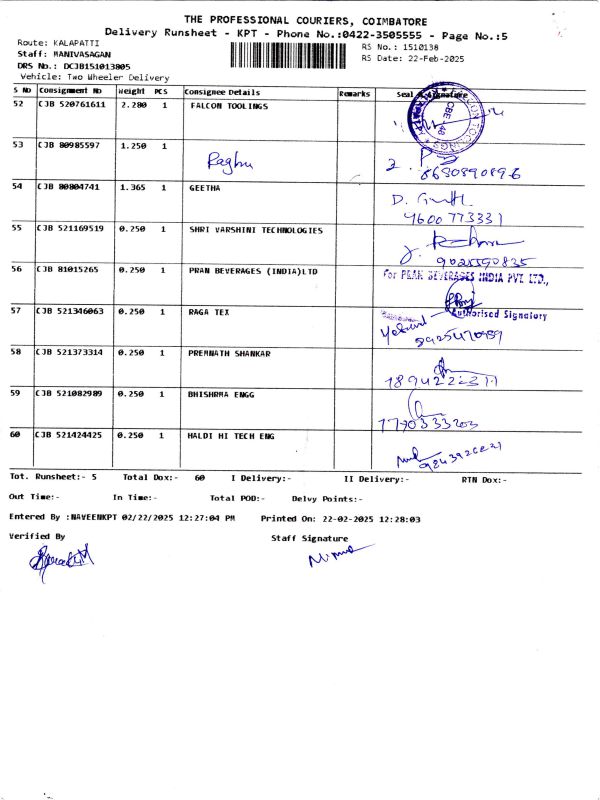 THE PROFESSIONAL COURIERS, COIMBATORE
Delivery Runsheet - KPT - Phone No.:0422-3505555 - Page No.:5
Route: KALAPATTI
RS No.: 1510138
Staff: MANIVASAGAN
RS Date: 22-Feb-2025
DRS No.: DCJB151013805
Vehicle: Two Wheeler Delivery
S No Consignment No Weight PCS Consignee Details Remarks Seal & Signature
52 CJB 520761611 2.280 1 FALCON TOOLINGS
53 CJB 80985597 1.250 1 Raghu
8630890896
54 CJB 80804741 1.365 1 GEETHA
4600773331
55 CJB 521169519 0.250 1 SHRI VARSHINI TECHNOLOGIES
9025590835
56 CJB 81015265 0.250 1 PRAN BEVERAGES (INDIA)LTD For PRAN BEVERAGES INDIA PVT LTD.,
Authorised Signatory
57 CJB 521346063 0.250 1 RAGA TEX
58 CJB 521373314 0.250 1 PREMNATH SHANKAR
59 CJB 521082989 0.250 1 BHISHRMA ENGG
7790333203
60 CJB 521424425 0.250 1 HALDI HI TECH ENG
Tot. Runsheet:- 5 Total Dox:- 60 I Delivery:- II Delivery:- RTN Dox:-
Out Time:- In Time:- Total POD:- Delvy Points:-
Entered By :NAVEENKPT 02/22/2025 12:27:04 PM Printed On: 22-02-2025 12:28:03
Verified By Staff Signature